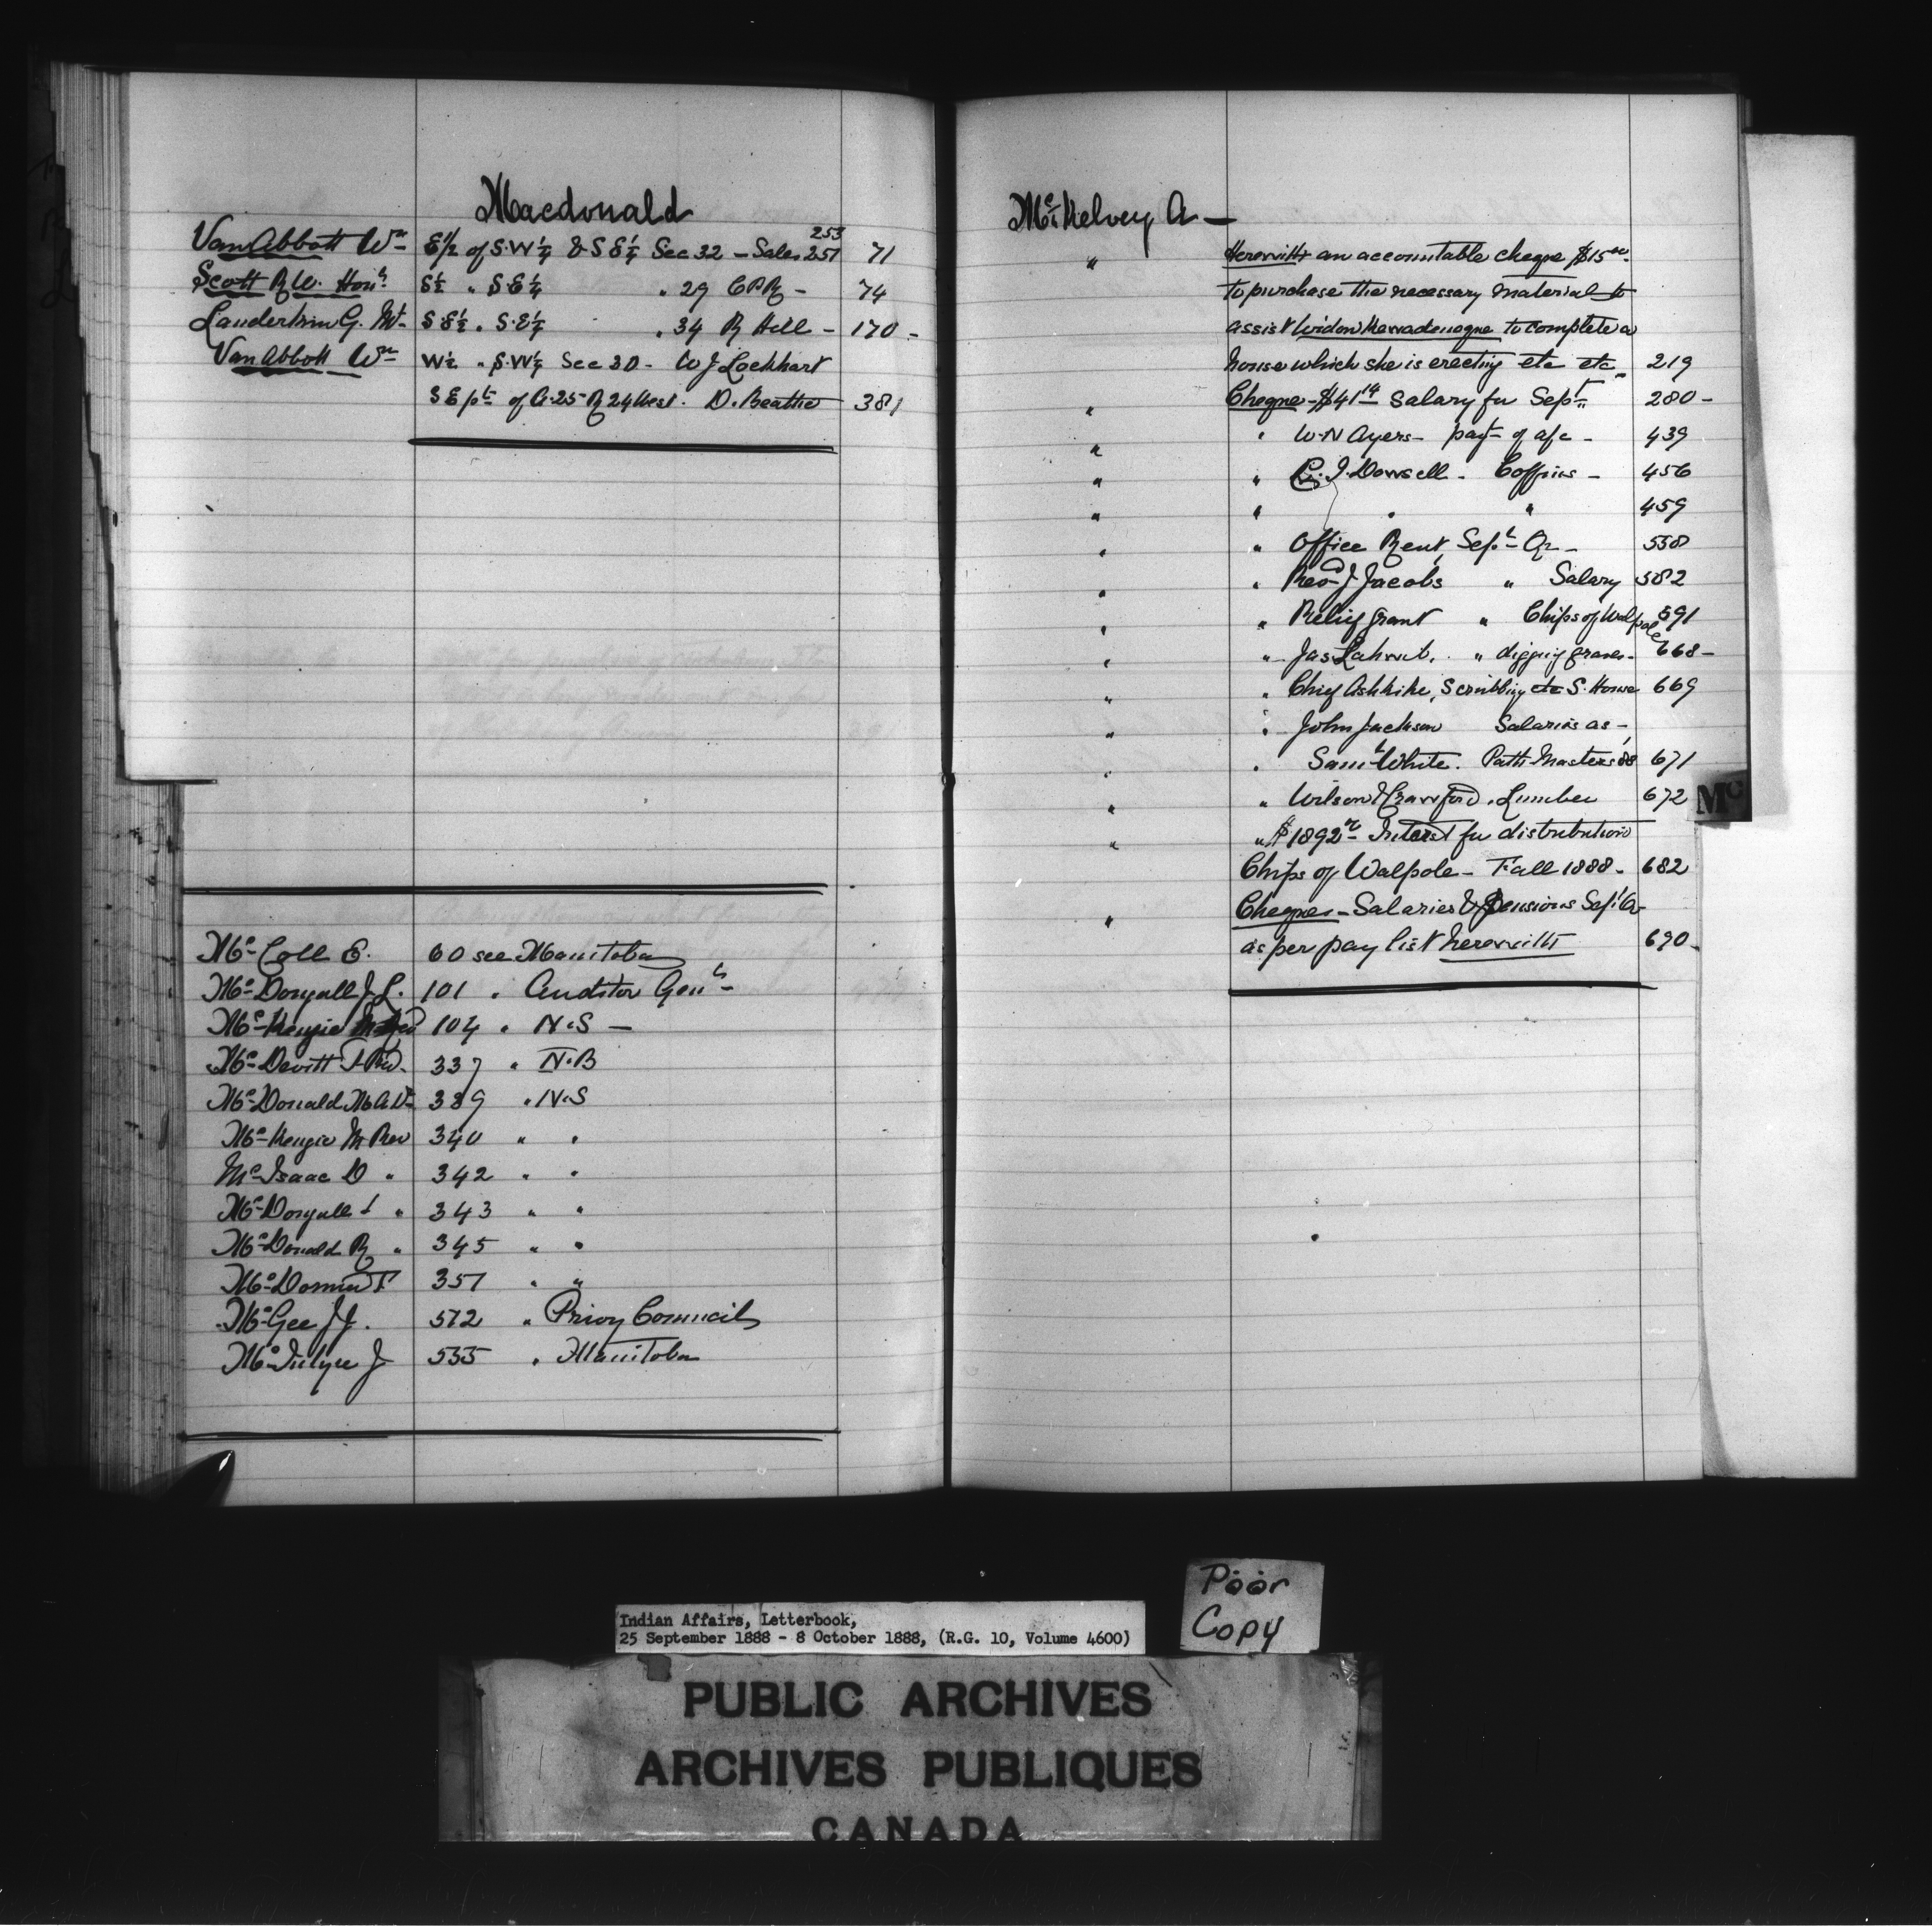 Macdonald
Van Abbott Wm E½ of S.W¼ & S E¼ Sec 32 – Sales 253 257 71
Scott R.W. Honl S½ " S E¼ " 29 CPR – 74
Landerkin G. Mr S.E½ " S.E¼ " 34 R Hill – 170 –
Van Abbott Wm W½ " S.W¼ Sec 30 – W J Lockhart
S E pt of 25 R 24 West. D. Beattie 381
Mc Coll E. 60 see Manitoba
Mc Dougall J L. 101 " Auditor Genl –
Mc Kenzie 104 " N.S –
Mc Devitt Rev. 337 " N.B
Mc Donald 339 " N.S
Mc Kenzie M Rev 340 " "
Mc Isaac D " 342 " "
Mc Dougall " 343 " "
Mc Donald R " 345 " "
Mc 357 " "
Mc Gee J J. 512 " Privy Council
Mc Intyre J 535 " Manitoba
McKelvey A –
" Herewith an accountable cheque $15 00
to purchase the necessary material to
assist Widow to complete a
house which she is erecting etc etc " 219
" Cheque – $41 14 Salary for Sept " 280 –
" " W.N Ayers – payt of a/c – 439
" " Dowsell – Coffins – 456
" " " " 459
" " Office Rent, Sept Qr – 538
" " Revd J Jacobs " Salary 582
" " Relief grant " Chips of Walpole 591
" " Jas " digging graves – 668 –
" " Chief Ashkike, Scrubbing etc S. House 669
" " John Jackson Salaries as –
" " Saml White. Path Masters 88 671
" " Wilson & Crawford. Lumber 672
" " $1892 Interest for distribution
Chips of Walpole – Fall 1888 – 682
" Cheques – Salaries & Pensions Sept Qr
as per pay list herewith 690 –
Mc
Poor
Copy
Indian Affairs, Letterbook,
25 September 1888 - 8 October 1888, (R.G. 10, Volume 4600)
PUBLIC ARCHIVES
ARCHIVES PUBLIQUES
CANADA